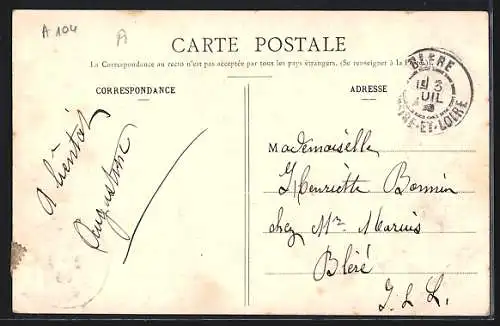 A 104
A
CARTE POSTALE
La Correspondance au recto n'est pas acceptée par tous les pays étrangers. (Se renseigner à la
CORRESPONDANCE
ADRESSE
BLÉRÉ
3
JUIL
INDRE-ET-LOIRE
A bientôt
Augustine
Mademoiselle
Henriette Bonnin
chez Mr. Marius
Bléré
I. L L.